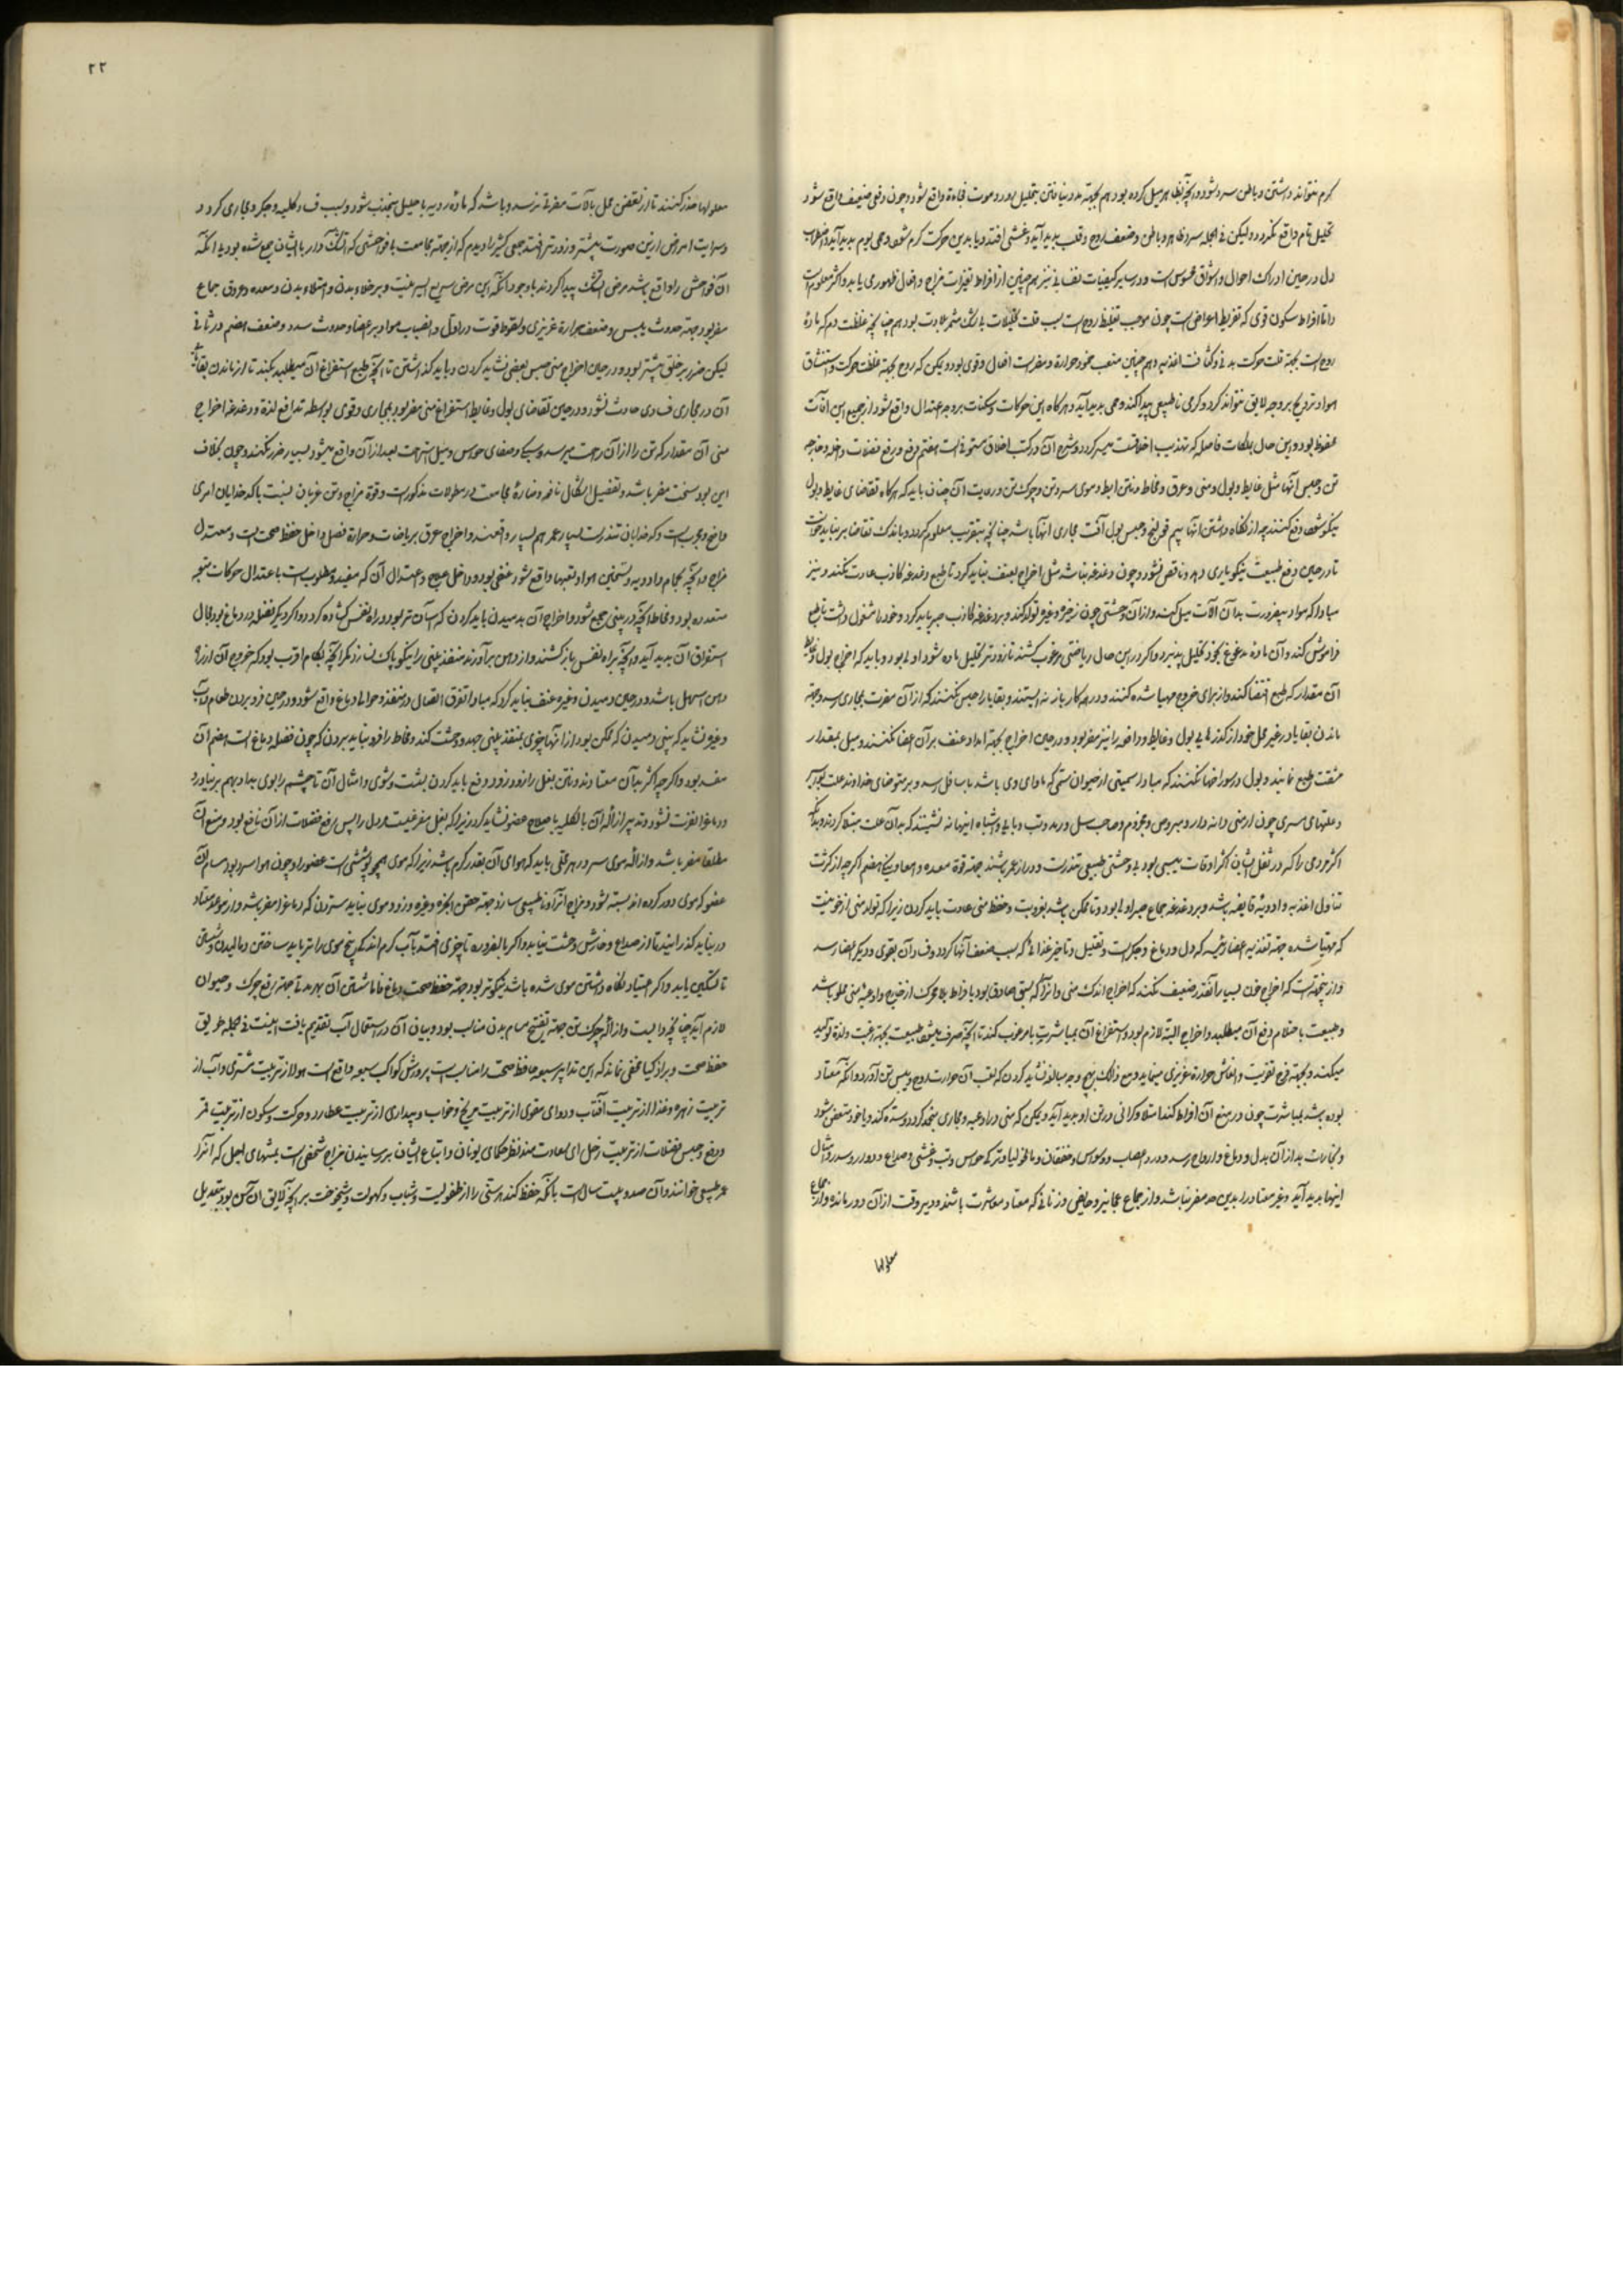 کرم نتواند داشتن و باطن سرد شود و آنچه بظاهر میل کرده بود هم بجهته مدد نیافتن بتحلیل رود و موت فجاءة واقع شود و چون دفعی ضعیف واقع شود
تحلیل تام واقع نکردد ولیکن فی الجمله سردی ظاهر و باطن و ضعف روح و قلب پدید آید و غشی افتد و یا بدین حرکت کرم شود و حمی یوم پدید آید و اضطراب
دل در حین ادراک احوال و اشواق محسوس است و در سایر کیفیات نفسانی نیز هم چنین از افراط تغیرات مزاج و افعال ظهوری یابد و اکثر معلوم است
و اما افراط سکون قوی که تفریط اعراضی است چون موجب تغلیظ روح است بسبب قلت تحلیلات
روح است بجهته قلت حرکت بدنی و کثافت اغذیه و هم چنین مضعف
هوا و ترویح بر وجه لایق نتواند کرد و کرمی ناطبیعی پیدا کند و حمی پدید آید و هرکاه این حرکات و سکنات بر وجه اعتدال واقع شود از جمیع این آفات
محفوظ بود و این حال بملکات فاضله که تهذیب اخلاقست میسر کردد و شرح آن در کتب اخلاق مستوفی است هفتم دفع و رفع فضلات داخله و خارجه
تن و حبس آنها مثل غایط و بول و منی و عرق و مخاط و نتن ابط و موی سر و تن و چرک تن و رعایت آن چنان باید که هرکاه تقاضای غایط و بول
نیکو شود دفع کنند چه از نکاه داشتن آنها بیم قولنج و حبس بول آفت مجاری آنها باشد چنانچه بتقریب معلوم کردد و باندک تقاضا بر نباید خواست
تا در حین دفع طبیعت نیکو یاری دهد و ناقص نشود و چون دغدغه نباشد مثل اخراج بعنف نباید کرد تا طبع دغدغه کاذب عادت نکند و نیز
مبادا که مواد بضرورت بدان آلات میل کنند و از آن وحشتی چون زحیر و غیره تولد کند و بر دغدغه کاذب صبر باید کرد و خود را مشغول داشت تا طبع
فراموش کند و آن ماده مدغدغ بخود تحلیل پذیرد و اکر در این حال ریاضتی مرغوب کنند تا زودتر تحلیل ماده شود اولی بود و باید که اخراج بول و غایط
آن مقدار که طبع اقتضا کند و از برای خروج مهیا شده کنند و در هر کار باز نه ایستند و بقایا را حبس نکنند که از آن مضرت بمجاری رسد و جهته
ماندن بقایا در غیر محل خود از کذرهای بول و غایط و دافعه را نیز مضر بود و در حین اخراج بجهته امداد عنف بر آن اعضا نکنند و میل بمقدار
مشقت طبع نمایند و بول در سوراخها نکنند که مبادا سمیتی از حیوان سمی که ماوای وی باشد باسافل رسد و بر متوضای خداوند علت بواسیر
و علتهای مسری چون ارمنی دانه دار و مبروص و مجذوم و صاحب سل و رمد و تب وبائی و اشباه اینها نه نشینند که بدان علت مبتلا کردند
اکثر مردی را که در ثفل ایشان اکثر اوقات یبسی بود بی وحشتی طبیعی تندرست و دراز عمر باشند جهته قوة معده و امعا و نیکی هضم اکرچه از کثرت
تناول اغذیه و ادویه قابضه باشد و بر دغدغه جماع صبر اولی بود و تا ممکن باشد بعزوبت و حفظ منی عادت باید کردن زیرا که تولد منی از خونیست
که مهیا شده جهته تغذیه اعضا رئیسه که دل و دماغ و جکر است و تقلیل و تاخیر غذائی که سبب ضعف آنها کردد و فساد آن بقوی و دیکر اعضا رسد
و از ینجهتست که اخراج خون بسیار آنقدر ضعیف نکند که اخراج اندک منی و آنرا که شبق صادق بود بافراط بلا محرک از خارج و اوعیه منی مملو باشد
و طبیعت باحتلام دفع آن میطلبد و اخراج البته لازم بود و استفراغ آن بمباشرت یا مرغوب کند تا آنچه صرف میشود طبیعت بجهته رغبت و لذة تولید
میکند و بجهته فرح تقویت و انعاش حرارة غریزی مینماید و مع ذلک بهیچ وجه مبالغه نشاید کردن که تعب آن حرارت روح و یبس تن آورد و آنکه معتاد
بوده باشد بمباشرت چون در منع آن افراط کند امتلا و کرانی در تن او پدید آید و یمکن که منی در اوعیه و مجاری منجمد کردد و سده کند و یا خود متعفن شود
و بخارات بد از آن بدل و دماغ و ارواح رسد و درد اعصاب و وسواس و خفقان و مالیخولیا و ترکه حواس و تب و غشی و صداع و دوار و سدر و امثال
اینها پدید آید و غیر معتاد را بدین حد مضر نباشد و از جماع عجایز و حایض و زنانی که معتاد مباشرت باشند و دیر وقت از آن دور مانده و از جماع
معلولها
۲۲
معلولها حذر کنند تا از تعفن محل بآلات مضرتی نرسد و باشد که مادۀ ردیه باحلیل منجذب شود و سبب فساد کلیه و جکر و مجاری کردد
و سرایت امراض ازین صورت بیشتر و زودتر افتد جمعی کثیر را دیدم که از جهته مجامعت با فواحشی که آتشک دار با ایشان جمع شده بود بی آنکه
آن فواحش را واقع باشد مرض آتشک پیدا کردند باوجود آنکه این مرض سریع السرایة نیست و بر خلاء بدن و امتلاء بدن و معده و عروق جماع
مضر بود جهته حدوث یبس و ضعف حرارة غریزی و سقوط قوت در اول و انصباب مواد بر اعضا و حدوث سدد و ضعف هضم در ثانی
لیکن ضرر بر خلق بیشتر بود و در حین اخراج منی حبس بعضی نشاید کردن و باید کذاشتن تا آنچه طبع استفراغ آن میطلبد بکند تا از ماندن بقایا
آن در مجاری فسادی حادث نشود و در حین تقاضای بول و غایط استفراغ منی مضر بود بمجاری و قوی بواسطه تدافع لذة و دغدغه اخراج
منی آن مقدار که تن را از آن راحت میرسد و سبکی و صفای حواس و میل اشتهاء بعد از آن واقع میشود بسیار ضرر نکند و چون بخلاف
این بود سخت مضر باشد و تفصیل اشکال نافعه و ضارۀ مجامعت در مطولات مذکورست و قوة مزاج و تن عزبان نسبت با کدخدایان امری
واضح و مجربست و کدخدایان تندرست بسیار عمر هم بسیار واقعند و اخراج عرق بریاضات و حرارة فصل داخل حفظ صحت است و معتدل
مزاج و آنچه بحمام و ادویه و تسخین هوا و تعبها واقع شود عنفی بود و داخل علاج و اعتدال آن که مفید و مطلوب است باعتدال حرکات متوجه
متعدده بود و مخاط آنچه در بینی جمع شود و اخراج آن بدمیدن باید کردن که آسان تر بود و راه نفس کشاده کردد و اکر دیکر فضله در دماغ بود مجال
استفراق آن پدید آید و آنچه براه نفس باز کشند و از دهن برآورند منفذ بینی را نیکو پاک نسازد مکر آنچه بکام اقرب بود که خروج آن از راه
دهن اسهل باشد و در حین دمیدن و غیره عنف نباید کرد که مبادا تفرق اتصال در منفذ و حوالی دماغ واقع شود و در حین فرو بردن طعام و آب
و غیره نشاید که بینی دمیدن که ممکن بود از آنها چیزی بمنفذ بینی جهد و وحشت کند و مخاط را فرو نباید بردن که چون فضله دماغ است هضم آن
مفسد بود و اکرچه اکثر بدان معتادند و نتن بغل را زود زود دفع باید کردن بشست و شوی و امثال آن تا چشم را بوی بد و بهم بر نیاورد
و دماغ را نفرت نشود و تدبیر ازاله آن بالکلیه باصلاح عضو نشاید کرد زیرا که بغل مفرغیست مر دل را پس دفع فضلات از آن نافع بود و منع آن
مطلقا مضر باشد و ازاله موی سر در هر وقتی باید که هوای آن بقدر کرم باشد زیرا که موی همچو پوششی است عضو را و چون هوا سرد بود مسام آن
عضو که موی دور کرده اند بسته شود و مزاج آنرا ناطبیعی سازد جهته حقن ابخره و غیره و زود موی نباید ستردن که دماغ را مضر باشد و از موعد معتاد
در نباید کذرانید تا از صداع و خارش وحشت نیابد و اکر بالضروره تاخیری افتد بآب کرم اندک بیخ موی را تر باید ساختن و مالیدن و شستن
تا تسکین یابد و اکر اعتیاد نکاه داشتن موی شده باشد نیکوتر بود جهته حفظ صحت دماغ فاما شستن آن بهر مدت جهته رفع چرک و حیوان
لازم آید چنانچه دانست و ازاله چرک تن جهته تفتح مسام بدن مناسب بود و بیان آن در استعمال آب تقدیم یافت اینست فی الجمله طریق
حفظ صحت و بر اذکیا مخفی نماند که این تدابیر سبعه حافظ صحت را مناسب است پرورش کواکب سبعه واقع است هوا از تربیت مشتری و آب از
تربیت زهره و غذا از تربیت آفتاب و دوای مقوی از تربیت مریخ و خواب و بیداری از تربیت عطارد و حرکت و سکون از تربیت قمر
و دفع و حبس فضلات از تربیت زحل ای سعادت مند نظر حکمای یونان و اتباع ایشان بر رسانیدن مزاج شخصی است بمنتهای اجل که آنرا
عمر طبیعی خوانند و آن صد و بیست سال است بآنکه حفظ کند هر سنی را از طفولیت و شباب و کهولت و شیخوخت بر آنچه لایق آن سن بود بتعدیل